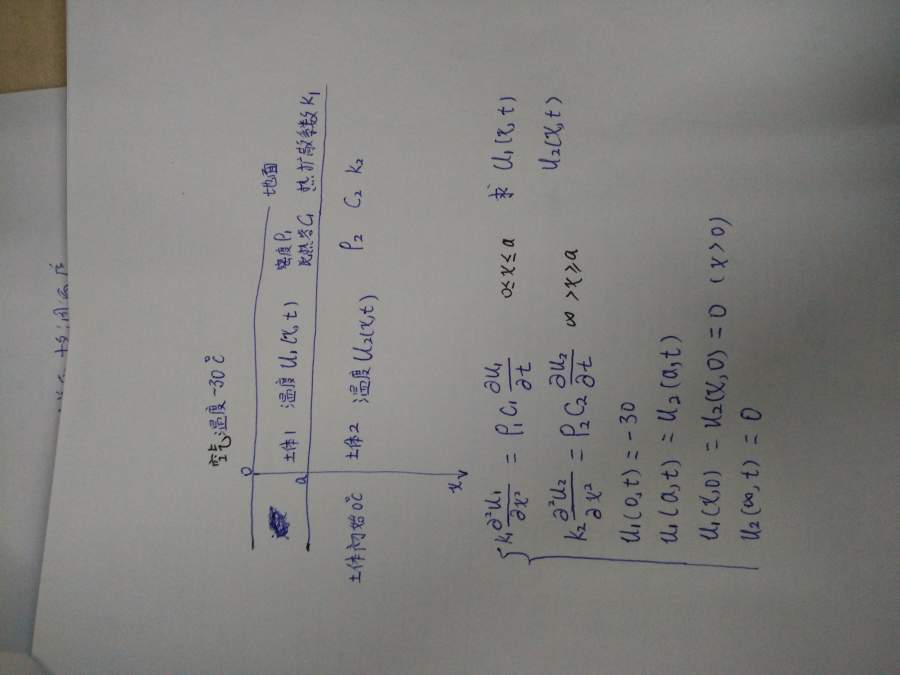 空气温度 -30℃
0
地面
土体1 温度 U₁(x,t) 密度ρ₁
比热容C₁ 热扩散系数 k₁
a
土体2 温度 U₂(x,t) ρ₂ C₂ k₂
土体初始0℃
x
k₁ ∂²u₁/∂x² = ρ₁ C₁ ∂u₁/∂t 0≤x≤a 求 U₁(x,t)
k₂ ∂²u₂/∂x² = ρ₂ C₂ ∂u₂/∂t ∞>x≥a U₂(x,t)
U₁(0,t) = -30
U₁(a,t) = U₂(a,t)
U₁(x,0) = U₂(x,0) = 0 (x>0)
U₂(∞,t) = 0